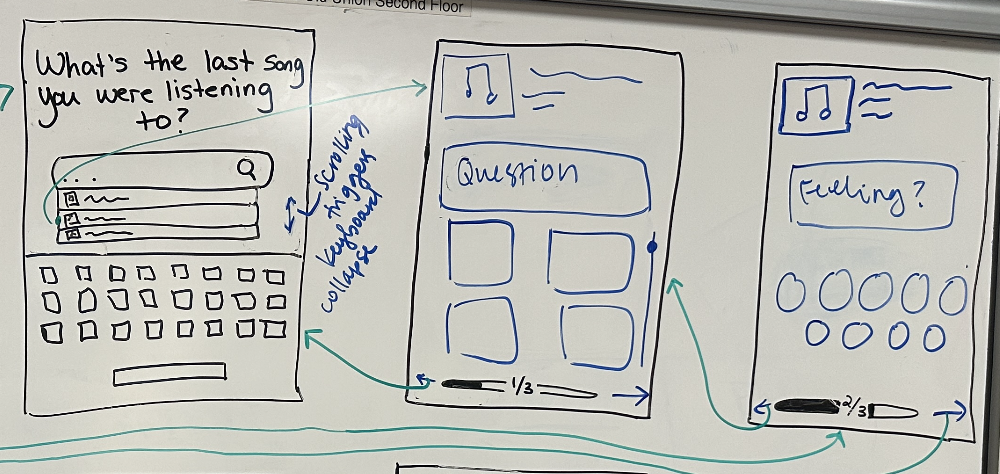 Union Second Floor
What's the last song
you were listening
to?
...
scrolling
triggers
keyboard
collapse
Question
1/3
Feeling?
2/3